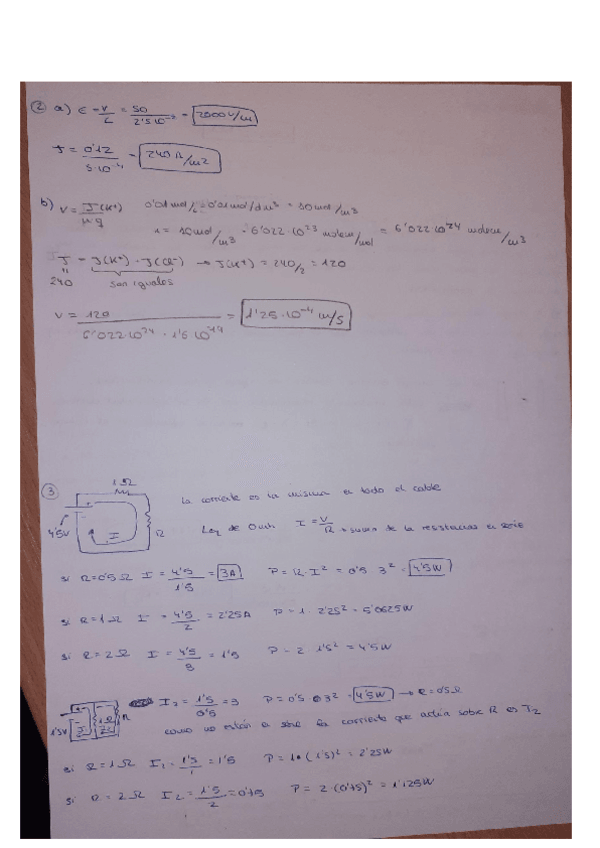 ② a) ε = V/L = 50/2'5·10⁻² = 2000 V/m
J = 0'12/5·10⁻⁴ = 240 A/m2
b) V = J(K⁺)/n q 0'01 mol/L = 0'01 mol/dm³ = 10 mol/m³
n = 10 mol/m³ · 6'022·10²³ molecu/mol = 6'022·10²⁴ molecu/m³
J = J(K⁺) + J(Cl⁻) → J(K⁺) = 240/2 = 120
240 son iguales
V = 120/6'022·10²⁴ · 1'6·10⁻¹⁹ = 1'25·10⁻⁴ m/s
③ 1 Ω
La corriente es la misma en todo el cable
4'5V I R Ley de Ohm I = V/R → suma de la resistencias en serie
si R=0'5 Ω I = 4'5/1'5 = 3A P = R·I² = 0'5 3² = 4'5W
si R=1 Ω I = 4'5/2 = 2'25A P = 1·2'25² = 5'0625W
si R=2 Ω I = 4'5/3 = 1'5 P = 2 1'5² = 4'5W
1'5V 1 Ω R I₂ = 1'5/0'5 = 3 P = 0'5 · 3² = 4'5W → R=0'5Ω
como no están en serie la corriente que actúa sobre R es I₂
si R=1 Ω I₁ = 1'5/1 = 1'5 P = 1·(1'5)² = 2'25W
si R=2 Ω I₂ = 1'5/2 = 0'75 P = 2·(0'75)² = 1'125W